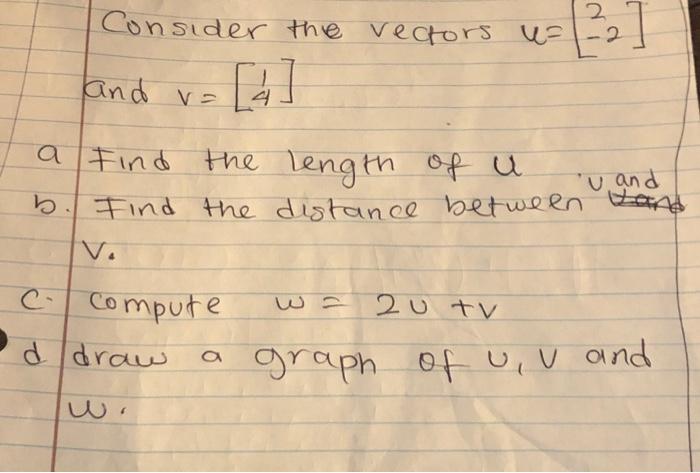 Consider the vectors u= [2 -2]
and v = [1 4]
a Find the length of u
b. Find the distance between u and
v.
c. compute w = 2u +v
d draw a graph of u, v and
w.